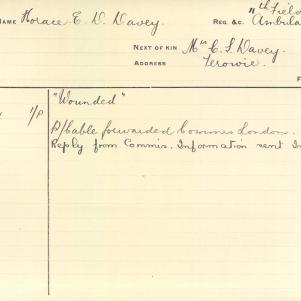 NAME Horace E. D. Davey. REG. &C. 11th Field
Ambula
NEXT OF KIN Mrs C. S. Davey.
ADDRESS Terowie.
F
1/P "Wounded"
P/Cable forwarded Commis London.
Reply from Commis. Information sent In